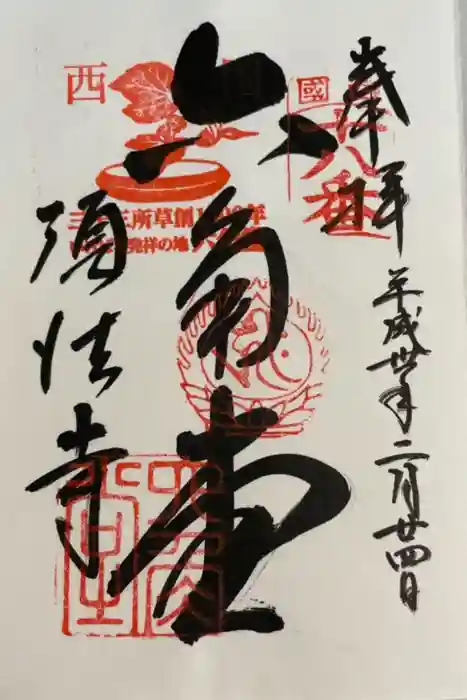 奉拝
平成卅年二月廿四日
國
十八番
六角堂
西
三十三所草創1300年
発祥の地
頂法寺